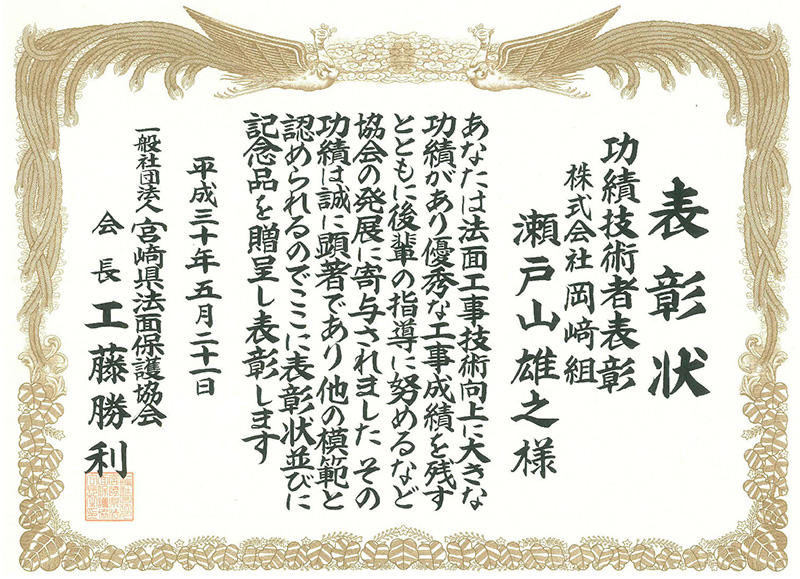 表彰状
功績技術者表彰
株式会社岡﨑組
瀬戸山雄之様
あなたは法面工事技術向上に大きな
功績があり優秀な工事成績を残す
とともに後輩の指導に努めるなど
協会の発展に寄与されました その
功績は誠に顕著であり他の模範と
認められるのでここに表彰状並びに
記念品を贈呈し表彰します
平成三十年五月二十一日
一般社団法人宮崎県法面保護協会
会長工藤勝利